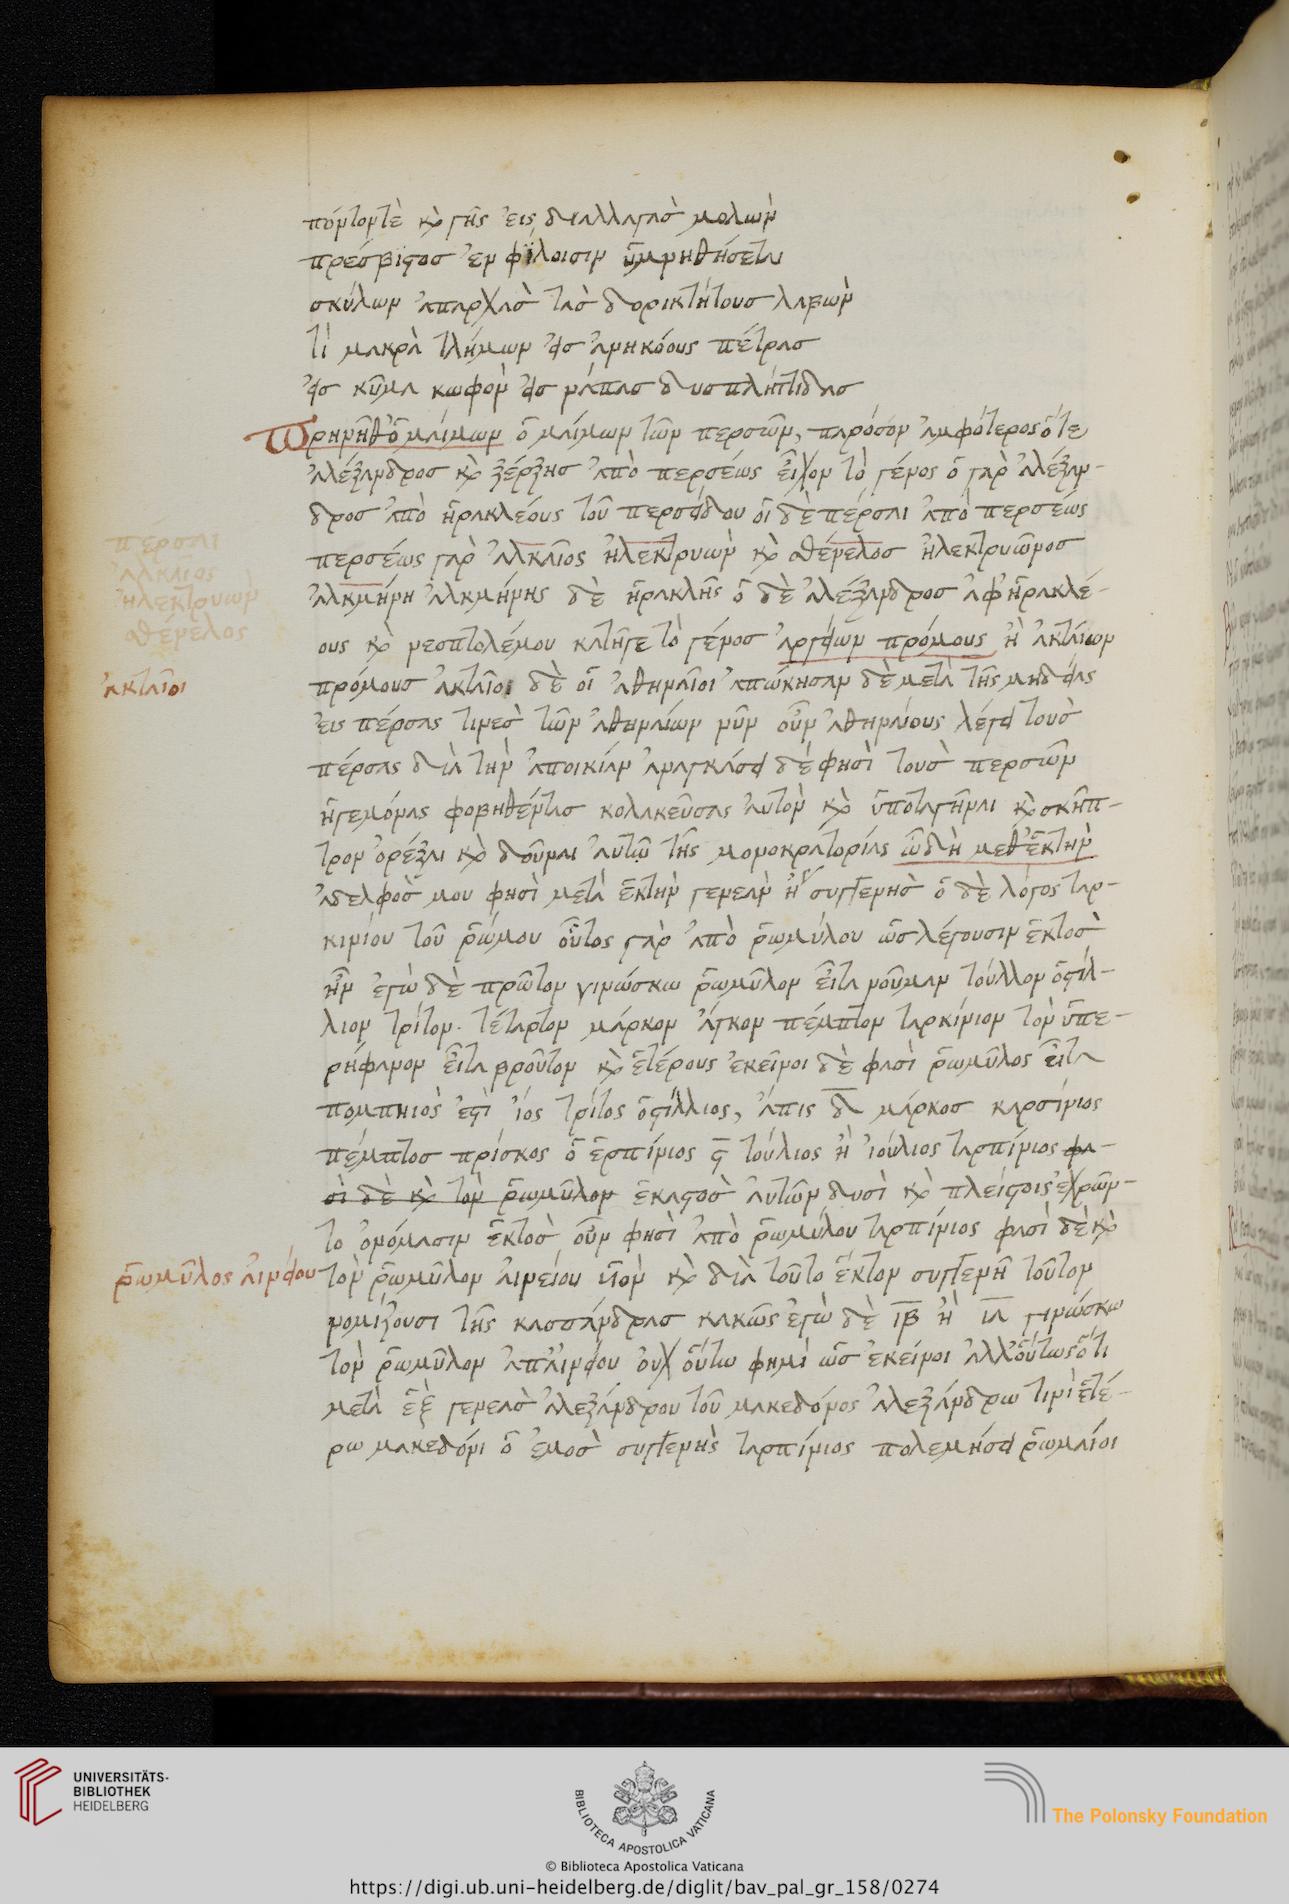 πόντοντὲ κὶ γῆς εἰς διαλλαγὰσ μολὼν
πρέσβϊστοσ ἐν φϊλοισιν ὑ̈μνηθήσεται
σκύλων ἀπαρχὰσ τὰσ δορικτήτους λαβὼν
τὶ μακρὰ τλήμων εἰσ ἀνηκόους πέτρασ
εἰσ κῦμα κωφὸν εἰσ νάπασ δυσπλήτιδασ
πρηνῆθὁ μαίμων ὁ μαίμων τῶν περσῶν, παρόσον ἀμφότερος ὅτε
ἀλέξανδροσ κὶ ξέρξησ ἀπὸ περσέως εἶχον τὸ γένος ὁ γαρ ἀλέξαν-
δροσ ἀπὸ ἡρακλέους τοῦ περσείδου οἱ δὲ πέρσαι ἀπὸ περσέως
περσέως γαρ ἀλκαῖος ἠλεκτρυὼν κὶ σθένελοσ ἠλεκτρυῶνοσ
ἀλκμήνη ἀλκμήνης δὲ ἡρακλῆς ὁ δὲ ἀλέξανδροσ ἀφ' ἡρακλέ-
ους κὶ νεοπτολέμου κατῆγε τὸ γένοσ ἀργείων πρόμους ἢ ἀκταίων
πρόμουσ ἀκταῖοι δὲ οἱ ἀθηναῖοι ἀπώκησαν δὲ μετὰ τῆς μηδείας
εἰς πέρσας τινεσ τῶν ἀθηναίων νῦν οὖν ἀθηναίους λέγει τοὺσ
πέρσας διὰ τὴν ἀποικίαν ἀναγκάσει δὲ φησὶ τοὺσ περσῶν
ἡγεμόνας φοβηθέντασ κολακεῦσαι αὐτὸν κὶ ὑποταγῆναι κὶ σκῆπ-
τρον ὀρέξαι κὶ δοῦναι αὐτῶ τῆς μονοκρατορίας ὧδὴ μεθ' ἕκτην
ἀδελφὸσ μου φησὶ μετὰ ἕκτην γενεὰν ἤ συγγενὴσ ὁ δὲ λόγος ταρ-
κινίου τοῦ ῥώμου οὗτος γαρ ἀπὸ ῥωμύλου ὡσ λέγουσιν ἕκτοσ
ἦν ἐγὼ δὲ πρῶτον γινώσκω ῥωμῦλον εἶτα νοῦμαν τούλλον ὁστίλ-
λιον τρίτον. τέταρτον μάρκον ἄγκον πέμπτον ταρκίνιον τὸν ὑπε-
ρήφανον εἶτα βροῦτον κὶ ἑτέρους ἐκεῖνοι δὲ φασὶ ῥωμῦλος εἶτα
πομπηιὸς ἐστὶ ἰός τρίτος ὁστίλλιος, ἄπις δ μάρκοσ καρσίνιος
πέμπτοσ πρίσκος ὁ ἑρπίνιος ϛ τούλιος ἢ ἰούλιος ταρπίνιος φα-
σὶ δὲ κὶ τὸν ῥωμῦλον ἕκαστοσ αὐτῶν δυσὶ κὶ πλείστοις ἐχρῶν-
το ὀνόμασιν ἕκτοσ οὖν φησὶ ἀπὸ ῥωμύλου ταρπίνιος φασὶ δὲ κὶ
τὸν ῥωμῦλον αἰνείου υἱὸν κὶ διὰ τοῦτο ἕκτον συγγενῆ τοῦτον
νομίζουσι τῆς κασσάνδρασ κακῶς ἐγὼ δὲ ιβ ἢ ια γινώσκω
τὸν ῥωμῦλον ἀπ' αἰνείου οὐχ οὕτω φημὶ ὡσ ἐκεῖνοι ἀλλ' οὕτωσ ὅτι
μετὰ ἓξ γενεὰσ ἀλεξάνδρου τοῦ μακεδόνος ἀλεξάνδρω τινὶ ἑτέ-
ρω μακεδόνι ὁ ἐμοσ συγγενὴς ταρπίνιος πολεμήσει ῥωμαίοι
πέρσαι
ἀλκαιος
ἠλεκτρυὼν
σθένελος
ἀκταῖοι
ῥωμῦλος αἰνείου
UNIVERSITÄTS-
BIBLIOTHEK
HEIDELBERG
BIBLIOTECA APOSTOLICA VATICANA
The Polonsky Foundation
© Biblioteca Apostolica Vaticana
https://digi.ub.uni-heidelberg.de/diglit/bav_pal_gr_158/0274